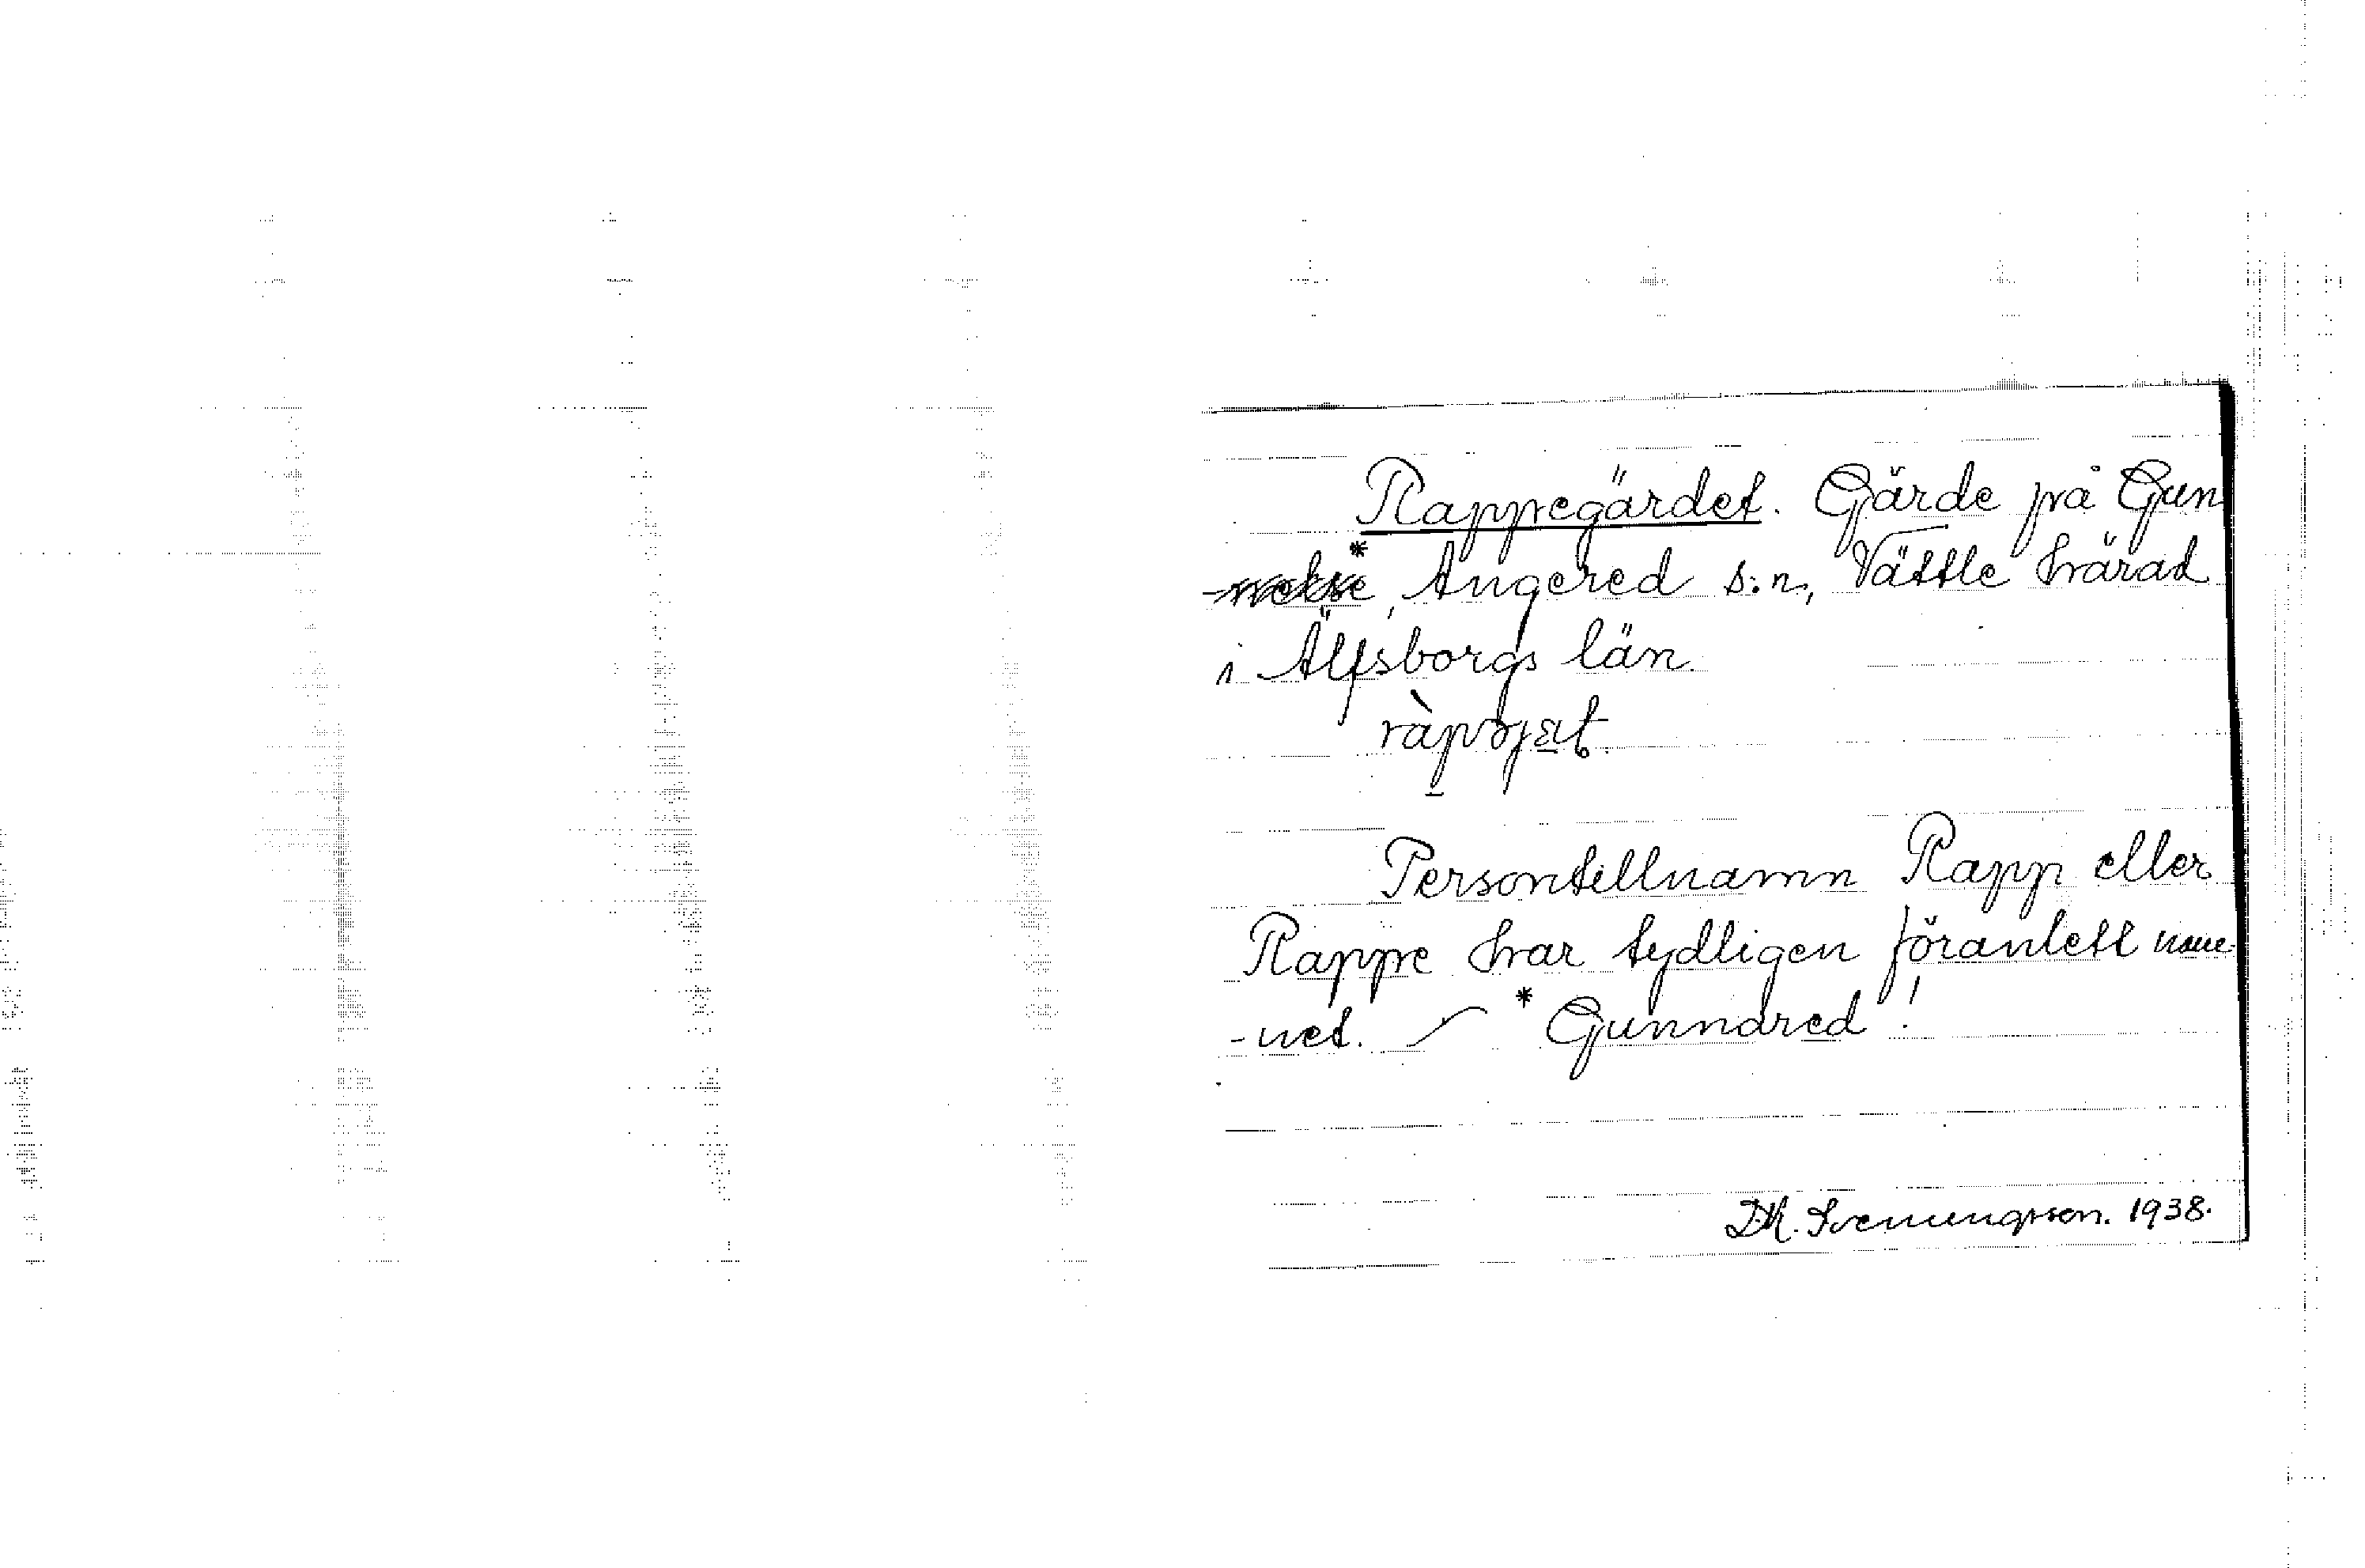 Rappegärdet. Gärde på Gun
* Angered s:n, Vättle härad
i Älfsborgs län.
Persontillnamn Rapp eller
Rappe har tydligen föranlett nam-
-net. * Gunnared!
D.H. Svenungsson. 1938.